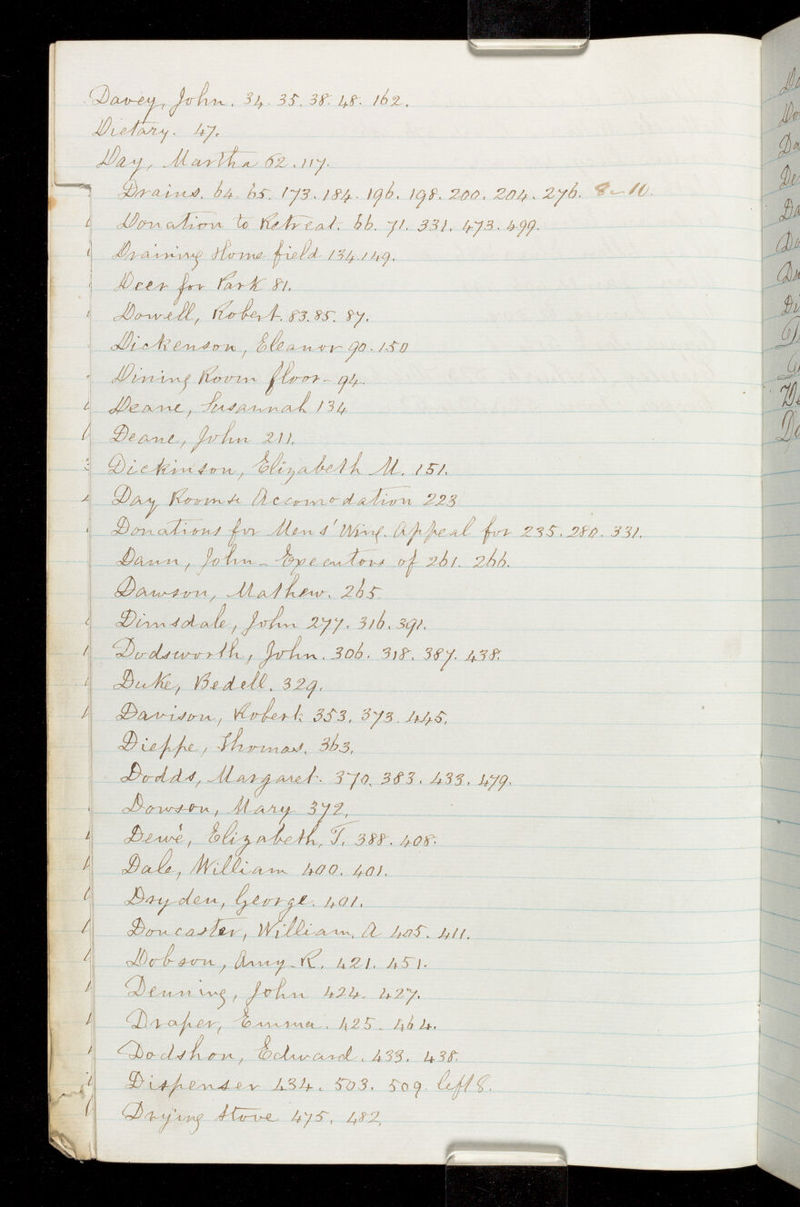 Davey, John. 34. 35. 38. 48. 162.
Dietary. 47.
Day, Martha 62. 117.
Drains. 64. 65. 173. 184. 196. 198. 200. 204. 276. 8-10.
Donation to Retreat. 66. 71. 331. 473. 499.
Draining Home field 134. 149.
Deer for Park 81.
Dowell, Robert. 83. 85. 87.
Dickenson, Eleanor 90. 150
Dining Room floor - 94.
Deane, Susannah 134
Deane, John 211.
Dickinson, Elizabeth M. 151.
Day Rooms Accomodation 223
Donations for Mens' Wing. Appeal for 235. 280. 331.
Dann, John - Executors of 261. 266.
Dawson, Mathew. 265
Dimsdale, John 277. 316. 391.
Dodsworth, John. 306. 318. 387. 438.
Duke, Bedell. 329.
Davison, Robert 353. 373. 445.
Dieppe, Thomas. 363.
Dodds, Margaret. 370. 383. 433. 479.
Dowson, Mary 372.
Dewé, Elizabeth, T. 388. 408.
Dale, William 400. 401.
Dryden, George. 401.
Doncaster, William. A 405. 411.
Dobson, Amy. R. 421. 451.
Denning, John 424. 427.
Draper, Emma. 425. 464.
Dodshon, Edward. 433. 438.
Dispenser 434. 503. 509. left 8.
Drying Stove 475. 482.